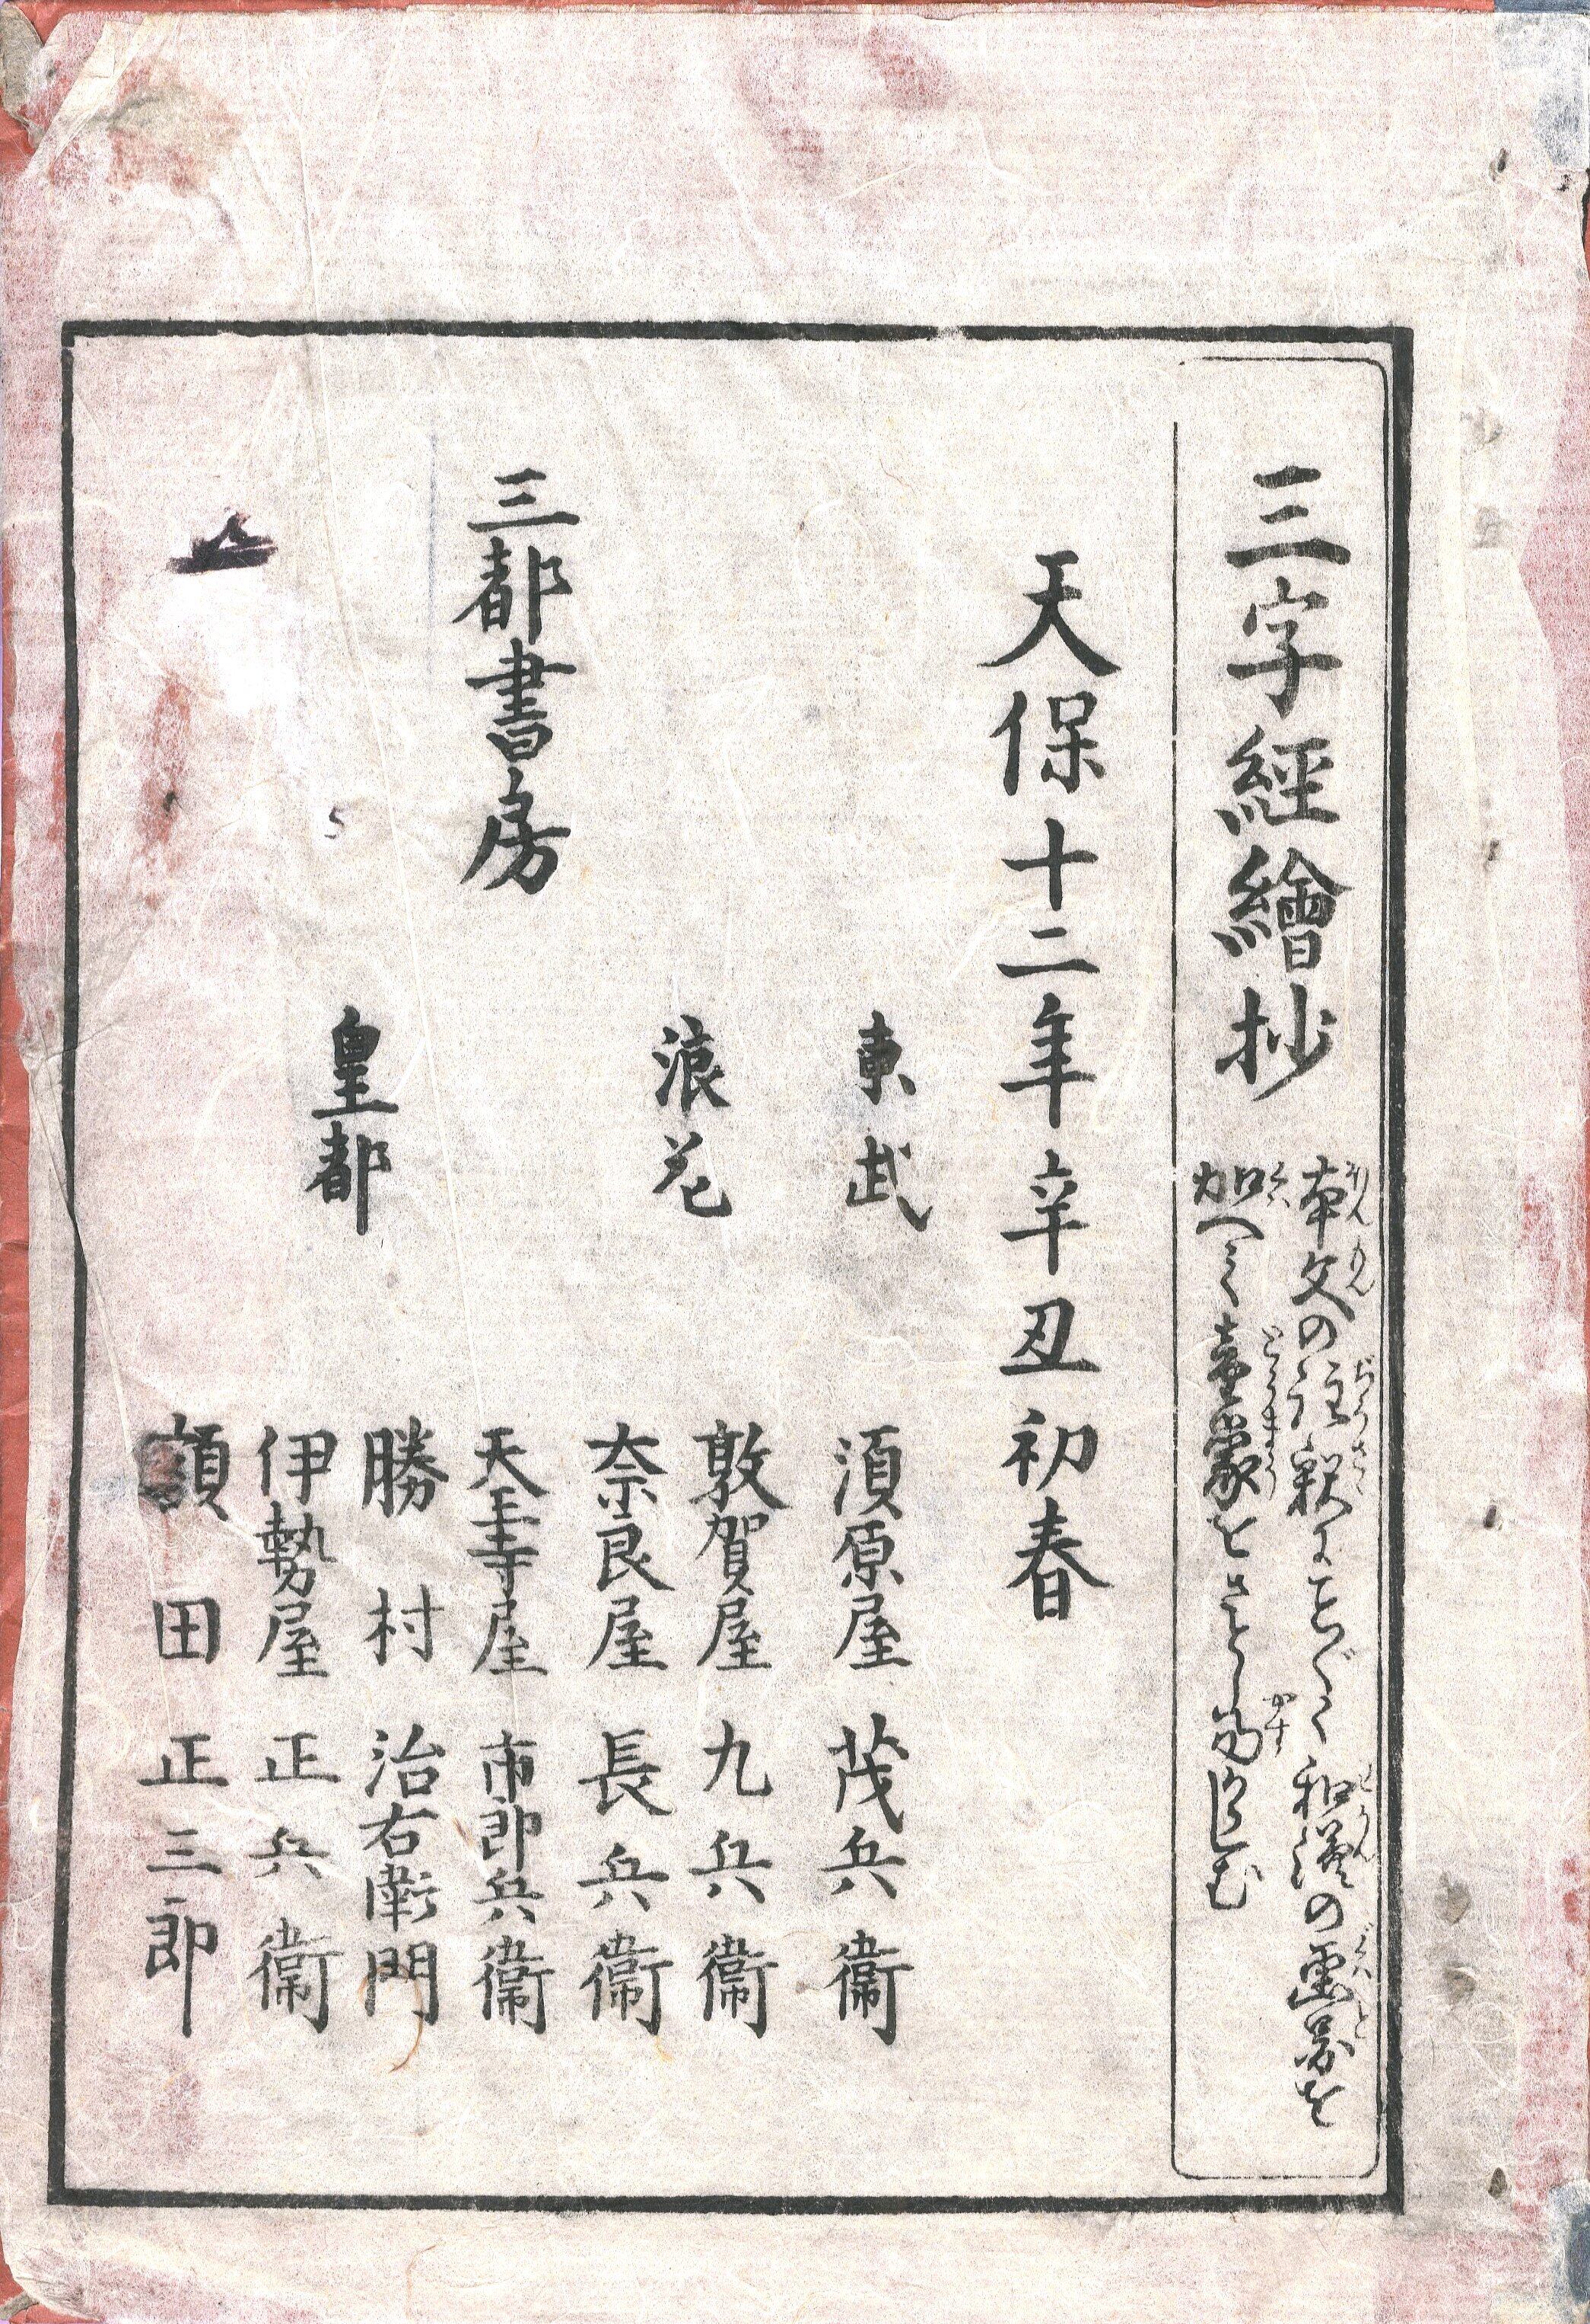 三字經繪抄
本文の註釈にもとづく和漢の画图を
加へて童蒙をさとし易からしむ
天保十二年辛丑初春
東武
須原屋茂兵衞
浪花
敦賀屋九兵衞
奈良屋長兵衞
三都書房
天王寺屋市郎兵衞
皇都
勝村治右衞門
伊勢屋正兵衞
額田正三郎